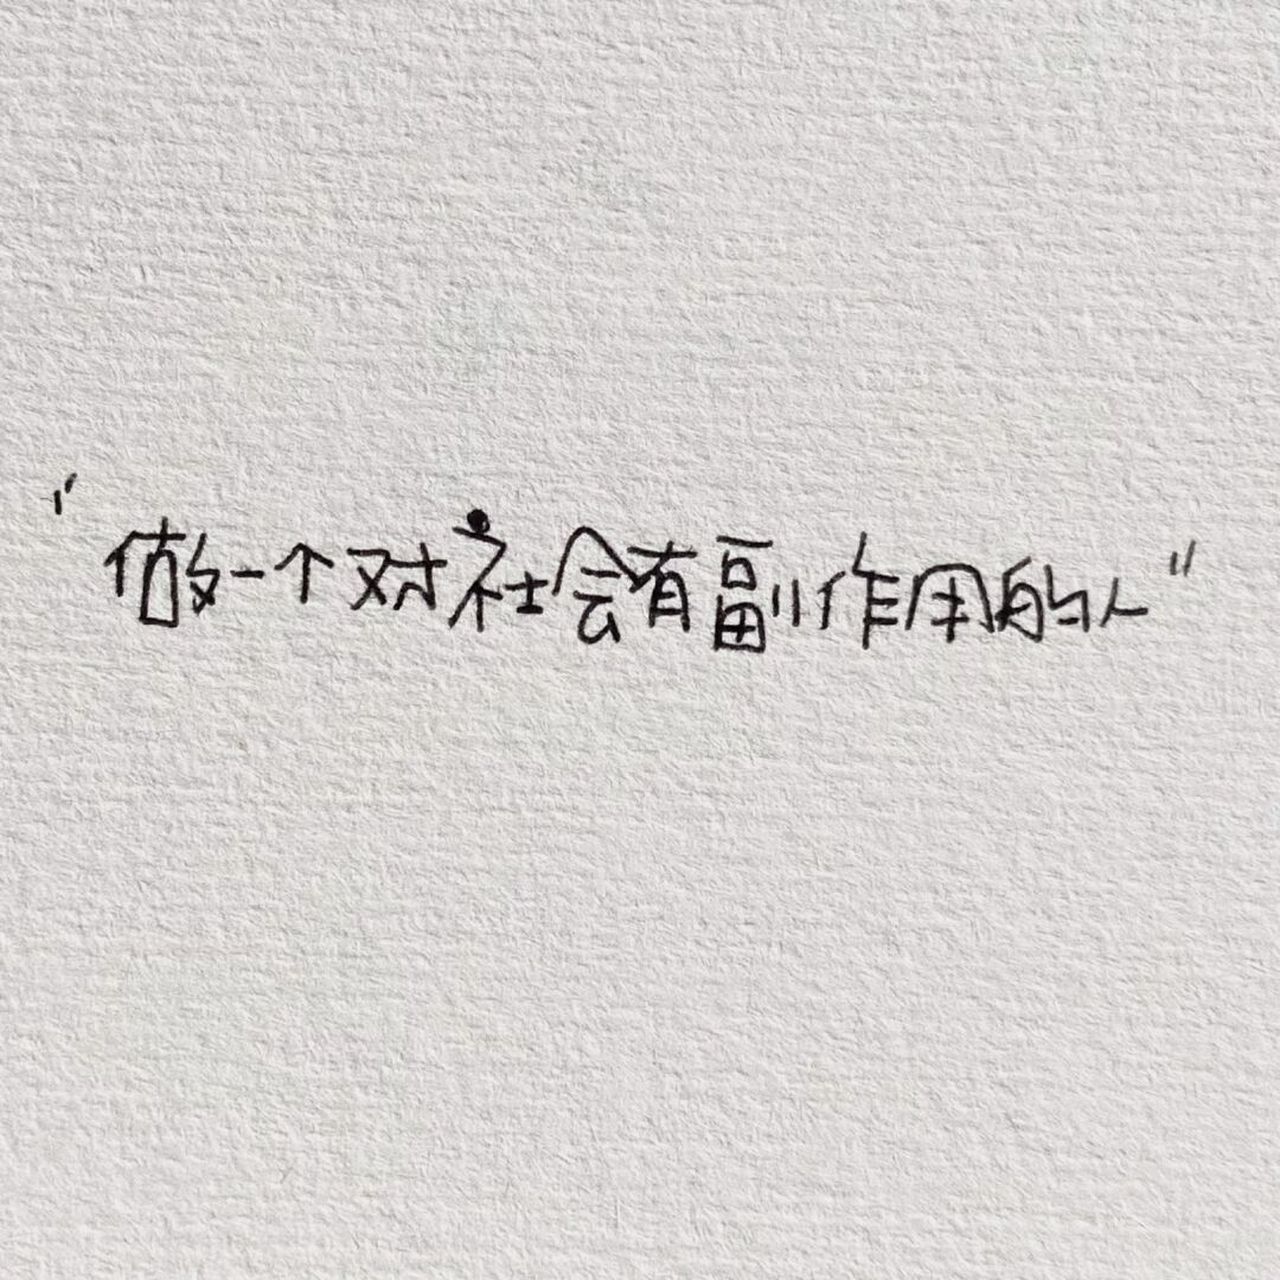 "做一个对社会有副作用的人"